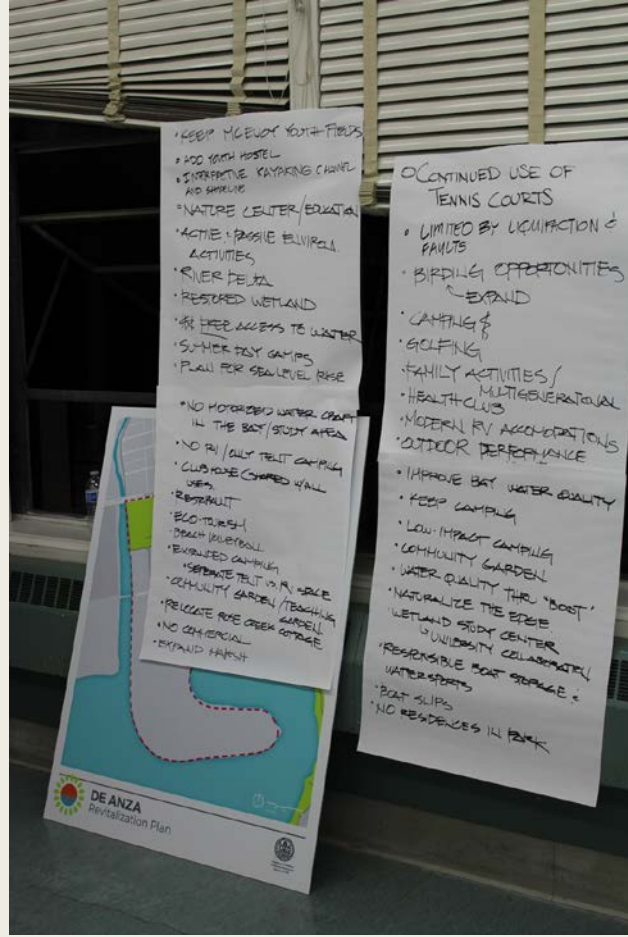 • KEEP MCEVOY YOUTH FIELDS
• ADD YOUTH HOSTEL
• INTERPRETIVE KAYAKING CHANNEL
AND SHORELINE
• NATURE CENTER/EDUCATION
• ACTIVE & PASSIVE ENVIRON.
ACTIVITIES
• RIVER DELTA
• RESTORED WETLAND
• FREE ACCESS TO WATER
• SUMMER DAY CAMPS
• PLAN FOR SEA LEVEL RISE
• NO MOTORIZED WATER CRAFT
IN THE BAY/STUDY AREA
• NO RV/ONLY TENT CAMPING
• CLUBHOUSE (SHARED W/ALL
USES
• RESTAURANT
• ECO-TOURISM
• BEACH VOLLEYBALL
• EXPANDED CAMPING
• SEPERATE TENT VS. RV SPACE
• COMMUNITY GARDEN/TEACHING
GARDEN
• RELOCATE ROSE CREEK COTTAGE
• NO COMMERCIAL
• EXPAND MARSH
O CONTINUED USE OF
TENNIS COURTS
• LIMITED BY LIQUIFACTION &
FAULTS
• BIRDING OPPORTUNITIES
EXPAND
• CAMPING
• GOLFING
• FAMILY ACTIVITIES/
MULTIGENERATIONAL
• HEALTH CLUB
• MODERN RV ACCOMODATIONS
• OUTDOOR PERFORMANCE
• IMPROVE BAY WATER QUALITY
• KEEP CAMPING
• LOW-IMPACT CAMPING
• COMMUNITY GARDEN
• WATER QUALITY THRU "BOOT"
• NATURALIZE THE EDGE
• WETLAND STUDY CENTER
UNIVERSITY COLLABORATION
• RESPONSIBLE BOAT STORAGE &
WATERSPORTS
• BOAT SLIPS
• NO RESIDENCES IN PARK
DE ANZA
Revitalization Plan